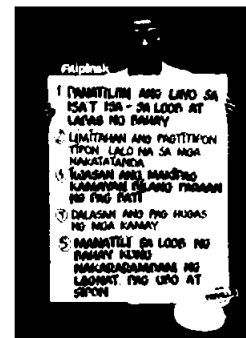 Filipinos
1 PANATILIHIN ANG LAYO SA
ISA'T ISA - SA LOOB AT
LABAS NG BAHAY
2 LIMITAHAN ANG PAGTITIPON
TIPON LALO NA SA MGA
NAKATATANDA
3 IWASAN ANG
KAMAYAN BILANG PARAAN
NG PAG BATI
4 DALASAN ANG PAG HUGAS
NG MGA KAMAY
5 MANATILI SA LOOB NG
BAHAY KUNG
NAKARARAMDAM NG
LAGNAT, PAG UBO AT
SIPON